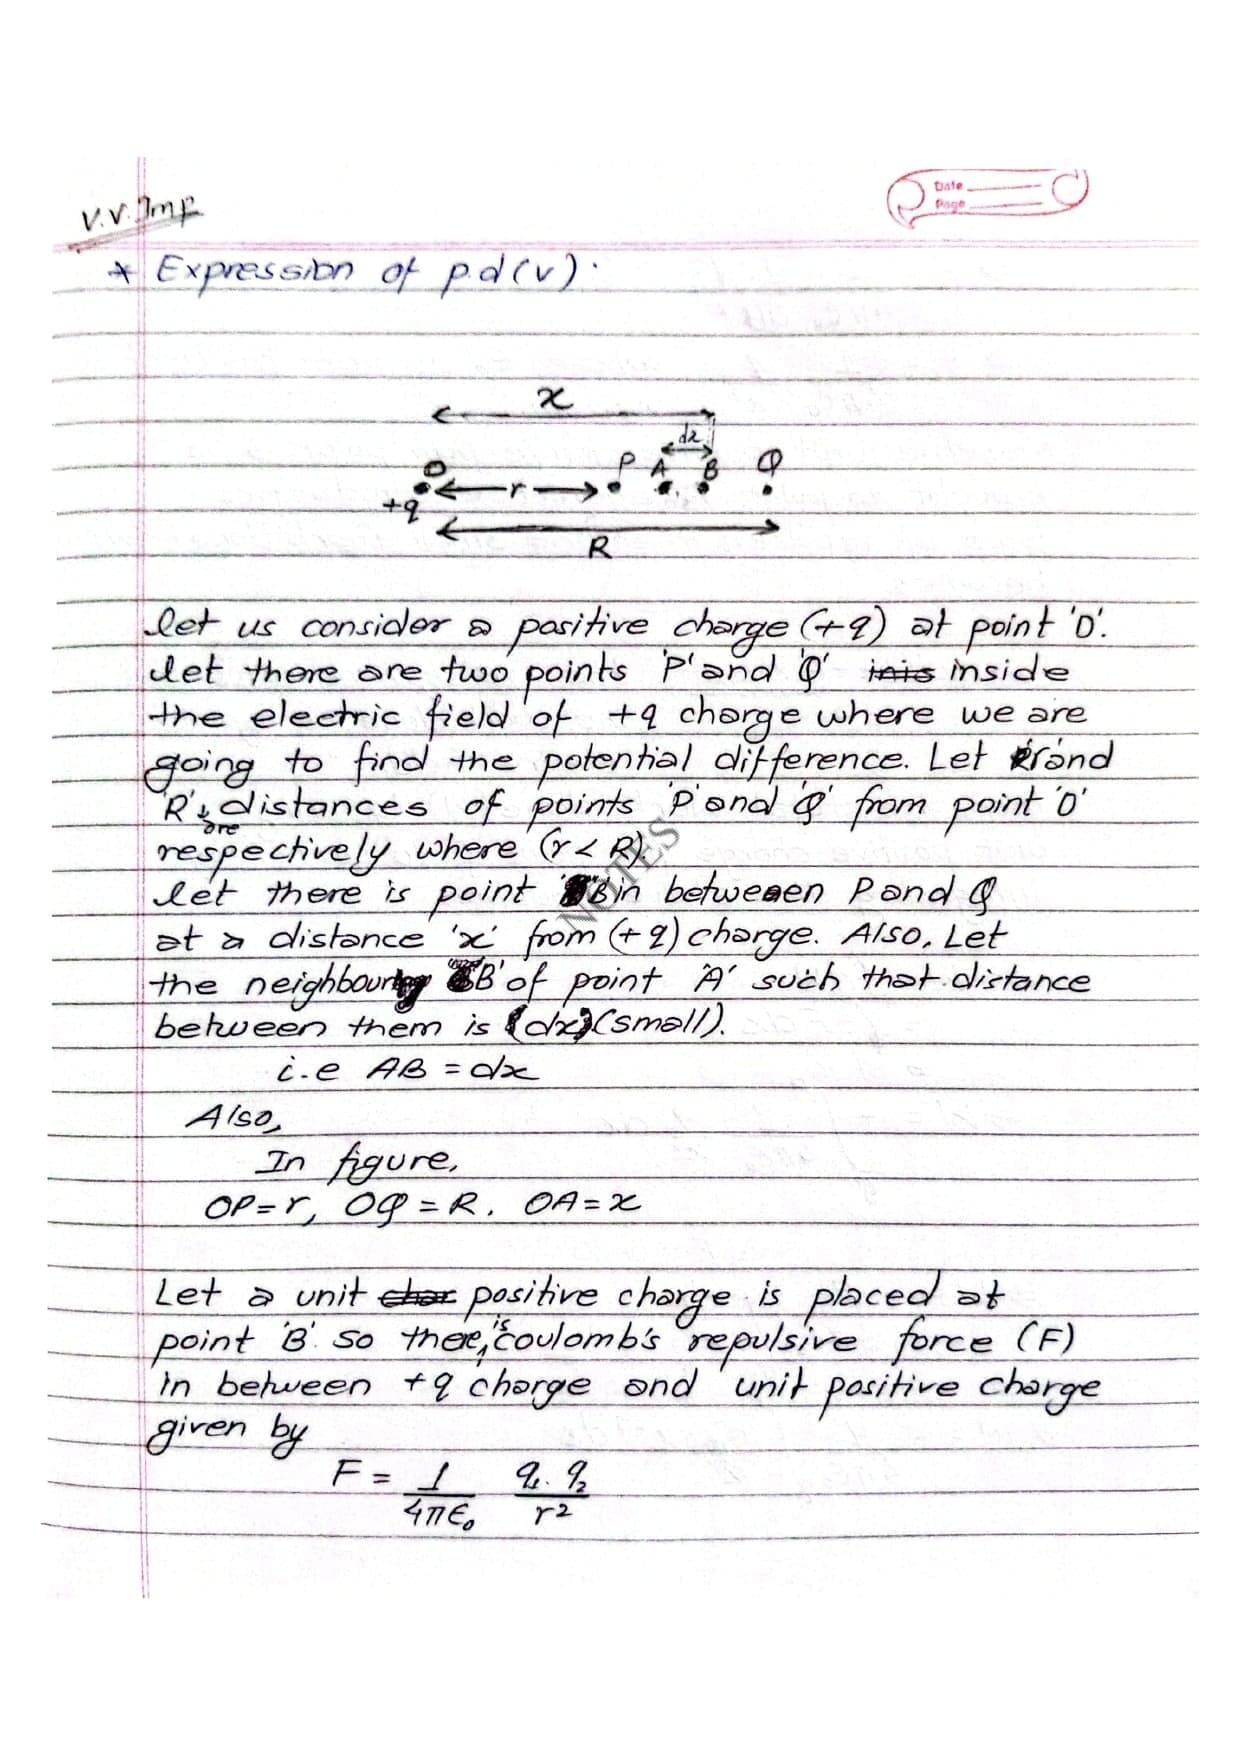 V.V. Imp
Date
Page
* Expression of p.d(v).
x
dx
O P A B Q
r
+q
R
let us consider a positive charge (+q) at point 'O'.
let there are two points 'P' and 'Q' inis inside
the electric field of +q charge where we are
going to find the potential difference. Let 'r' and
'R' are distances of points 'P' and 'Q' from point 'O'
respectively where (r < R).
let there is point 'B' in between P and Q
at a distance 'x' from (+q) charge. Also, Let
the neighbouring 'B' of point 'A' such that distance
between them is (dx) (small).
i.e AB = dx
Also,
In figure,
OP = r, OQ = R. OA = x
Let a unit char positive charge is placed at
point 'B'. so there is coulomb's repulsive force (F)
in between +q charge and unit positive charge
given by
F = 1/4πε₀ q₁. q₂/r²
NOTES